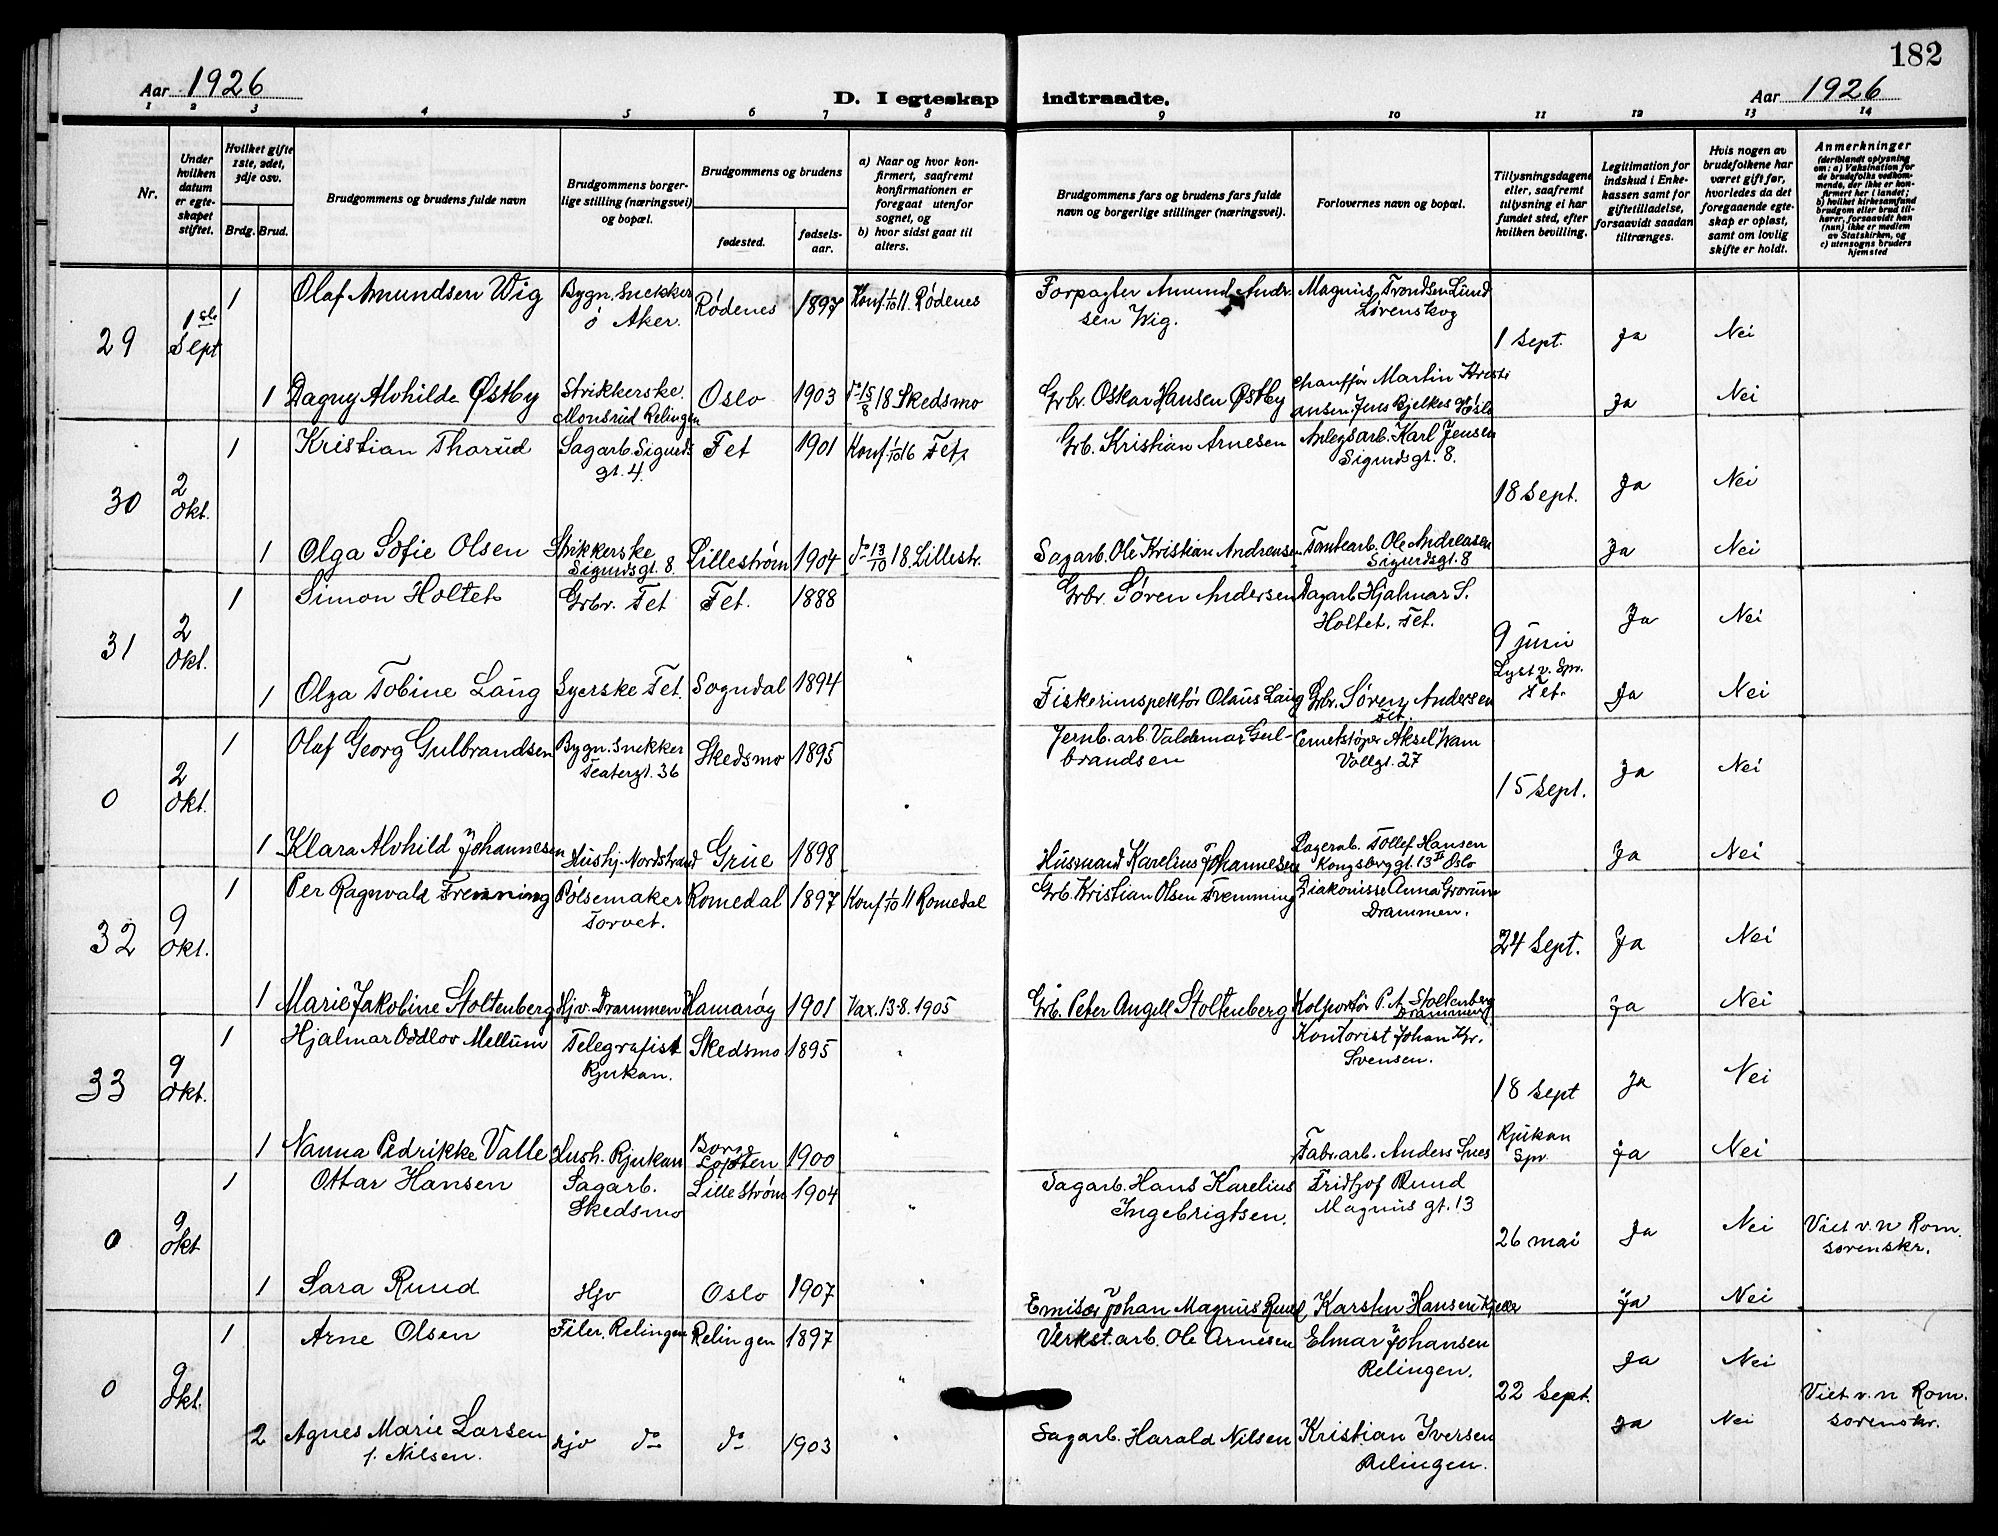 182
Aar 1926
D. I egteskap indtraadte.
Aar 1926
1 2 3 4 5 6 7 8 9 10 11 12 13 14
Nr.
Under hvilken datum er egteskapet stiftet.
Hvilket gifte 1ste, 2det, 3dje osv.
Brdg. Brud.
Brudgommens og brudens fulde navn
Brudgommens borgerlige stilling (næringsvei) og bopæl.
Brudgommens og brudens
fødested.
fødselsaar.
a) Naar og hvor konfirmert, saafremt konfirmationen er foregaat utenfor sognet, og
b) hvor sidst gaat til alters.
Brudgommens fars og brudens fars fulde navn og borgerlige stillinger (næringsvei).
Forlovernes navn og bopæl.
Tillysningsdagene eller, saafremt tillysning ei har fundet sted, efter hvilken bevilling.
Legitimation for indskud i Enkekassen samt for giftetilladelse, forsaavidt saadan tiltrænges.
Hvis nogen av brudefolkene har været gift før, hvorledes da det foregaaende egteskap er opløst, samt om lovlig skifte er holdt.
Anmerkninger
(deriblandt oplysning om: a) Vaksination for de brudefolks vedkommende, der ikke er konfirmert her i landet; b) hvilket kirkesamfund brudgom eller brud tilhører, forsaavidt han (hun) ikke er medlem av Statskirken, og c) utensogns bruders hjemsted
29 1ste Sept 1 Olaf Amundsen Wig Bygn. Snekker Ø Aker. Rødenes 1897 Konf 1/10 11 Rødenes Forpagter Amund Andersen Wig. Magnus Trondsen Lund Lørenskog 1 Sept. Ja Nei
1 Dagny Alvhilde Østby Strikkerske. Monsrud Relingen Oslo 1903 do 15/8 18 Skedsmo Grbr. Oskar Hansen Østby Chauffør Martin Kristiansen Jens Bjelkes gt. Oslo Ja Nei
30 2 Okt. 1 Kristian Thorud Sagarb. Sigurds gt. 4. Fet 1901 Konf 1/10 16 Fet Grb. Kristian Arnesen Anlegsarb. Karl Jensen Sigurdsgt. 8. 18 Sept. Ja Nei
1 Olga Sofie Olsen Strikkerske Sigurdsgt. 8 Lillestrøm 1904 do 13/10 18. Lillestr. Sagarb. Ole Kristian Andreasen Tomtearb. Ole Andreasen Sigurdsgt. 8 Ja Nei
31 2 Okt. 1 Simon Holtet Grbr. Fet Fet. 1888 Grbr. Søren Andersen Dagarb. Hjalmar S. Holtet. Fet. 9 juni Lyst v. Spr. Fet. Ja Nei
1 Olga Tobine Laug Syerske Fet. Sogndal 1894 " Fiskeriinspektør Olaus Laug Grbr. Søren Andersen Fet. Ja Nei
0 2 Okt. 1 Olaf Georg Gulbrandsen Bygn. Snekker Teatergt. 36 Skedsmo 1895 " Jernb. arb. Valdemar Gulbrandsen Cemetstøper Aksel Wam Vollgt. 27 15 Sept. Ja Nei
1 Klara Alvhild Johannesen Hushj. Nordstrand Grue 1898 Husmand Karelius Johannesen Lagerab. Tollef Hansen Kongsberggt. 13 II Oslo Ja Nei
32 9 Okt. 1 Per Ragnvald Fremning Pølsemaker Torvet. Romedal 1897 Konf 1/10 11 Romedal Grb. Kristian Olsen Fremming Diakonisse Anna Grorum Drammen. 24 Sept. Ja Nei
1 Marie Jakobine Stoltenberg Hjv. Drammen Hamarøy 1901 Vax. 13-8. 1905 Grb. Peter Angell Stoltenberg Kolportør P. A. Stoltenberg Drammen Ja Nei
33 9 Okt. 1 Hjalmar Oddlov Mellum Telegrafist Rjukan. Skedsmo 1895 " Kontorist Johan Kr. Svensen. 18 Sept Ja Nei
1 Nanna Pedrikke Valle Hush. Rjukan Borge Lofoten 1900 " Fabr. arb. Anders Snes Rjukan Spr. Ja Nei
0 9 Okt 1 Ottar Hansen Sagarb. Skedsmo Lillestrøm 1904 " Sagarb. Hans Karelius Ingebrigtsen. Fridtjof Ruud Magnus gt. 13 26 mai Ja Nei Viet v. n Rom. sorenskr.
1 Sara Ruud Hjv Oslo 1907 " Emisær Johan Magnus Ruud Karsten Hansen Kjeller Ja Nei
0 9 Okt. 1 Arne Olsen Filer, Relingen Relingen 1897 " Verkst. arb. Ole Arnesen Elmar Johansen Relingen. 22 Sept. Ja Nei Viet v. n Rom. sorenskr.
2 Agnes Marie Larsen f. Nilsen. Hjv do do 1903 " Sagarb. Harald Nilsen Kristian Iversen Relingen. Ja Nei